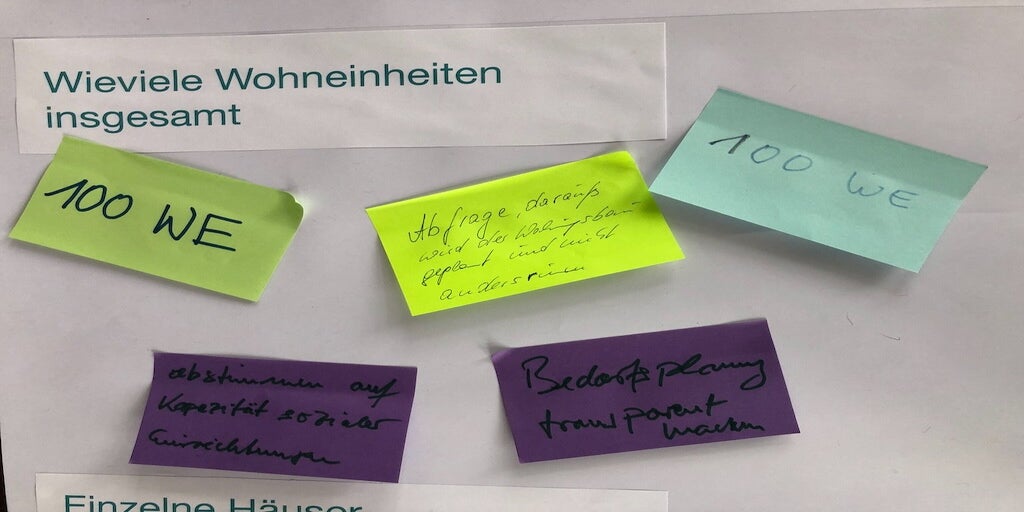 Wieviele Wohneinheiten
insgesamt
100 WE
Abfrage, darauß
wird der Wohungsbau
geplant und nicht
andersrum
100 WE
abstimmen auf
Kapazität sozialer
Einrichtungen
Bedarfsplanung
transparent
machen
Einzelne Häuser